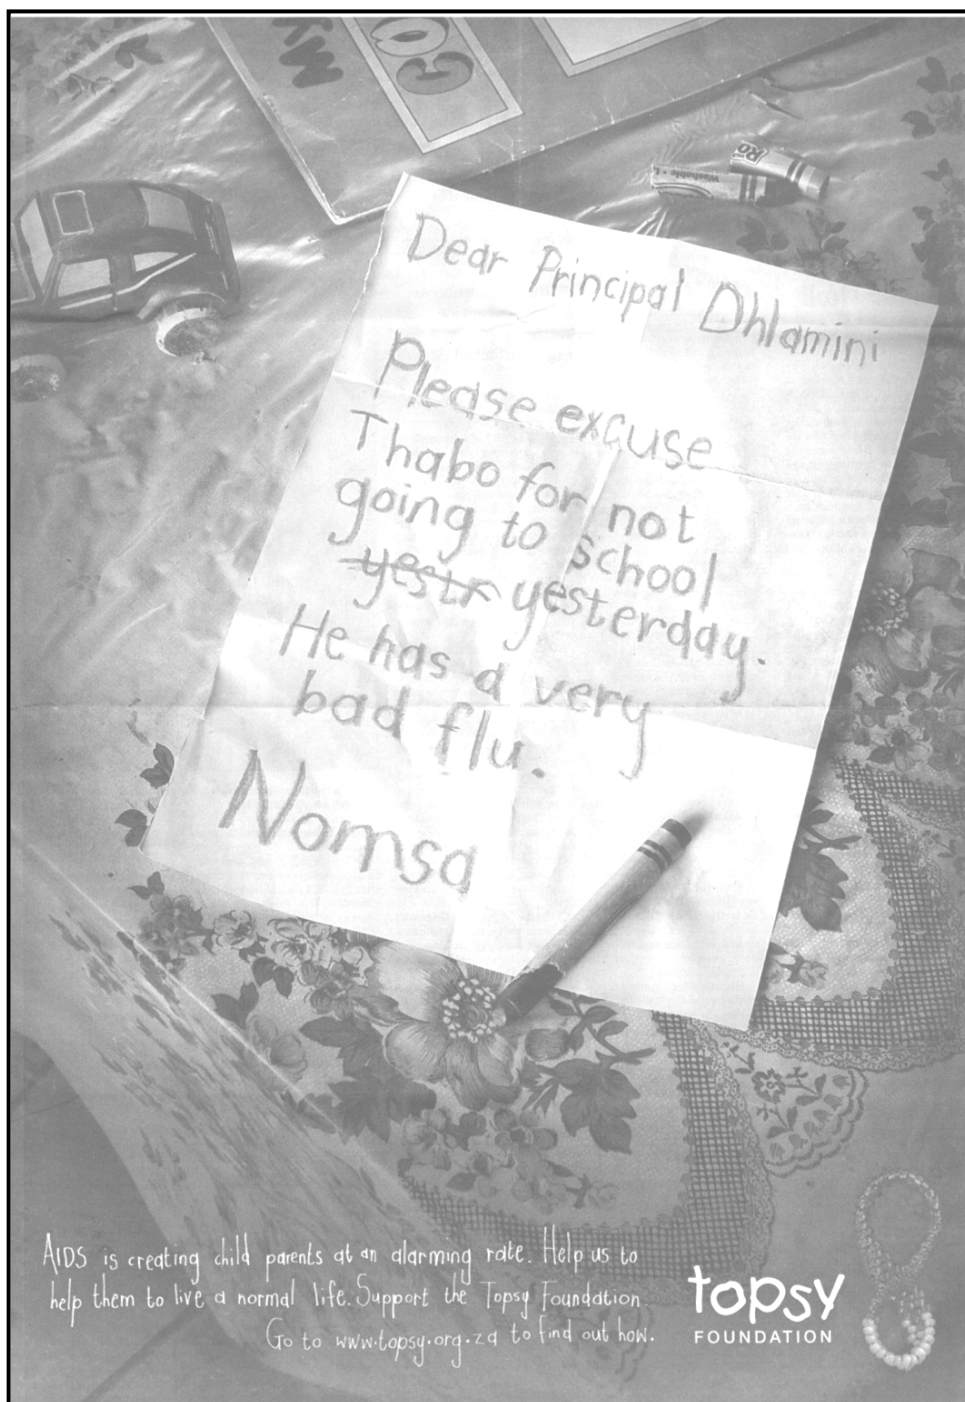 Washable
RO
Dear Principal Dhlamini
Please excuse
Thabo for not
going to school
yestr yesterday.
He has a very
bad flu.
Nomsa
AIDS is creating child parents at an alarming rate. Help us to
help them to live a normal life. Support the Topsy Foundation
Go to www.topsy.org.za to find out how.
topsy
FOUNDATION